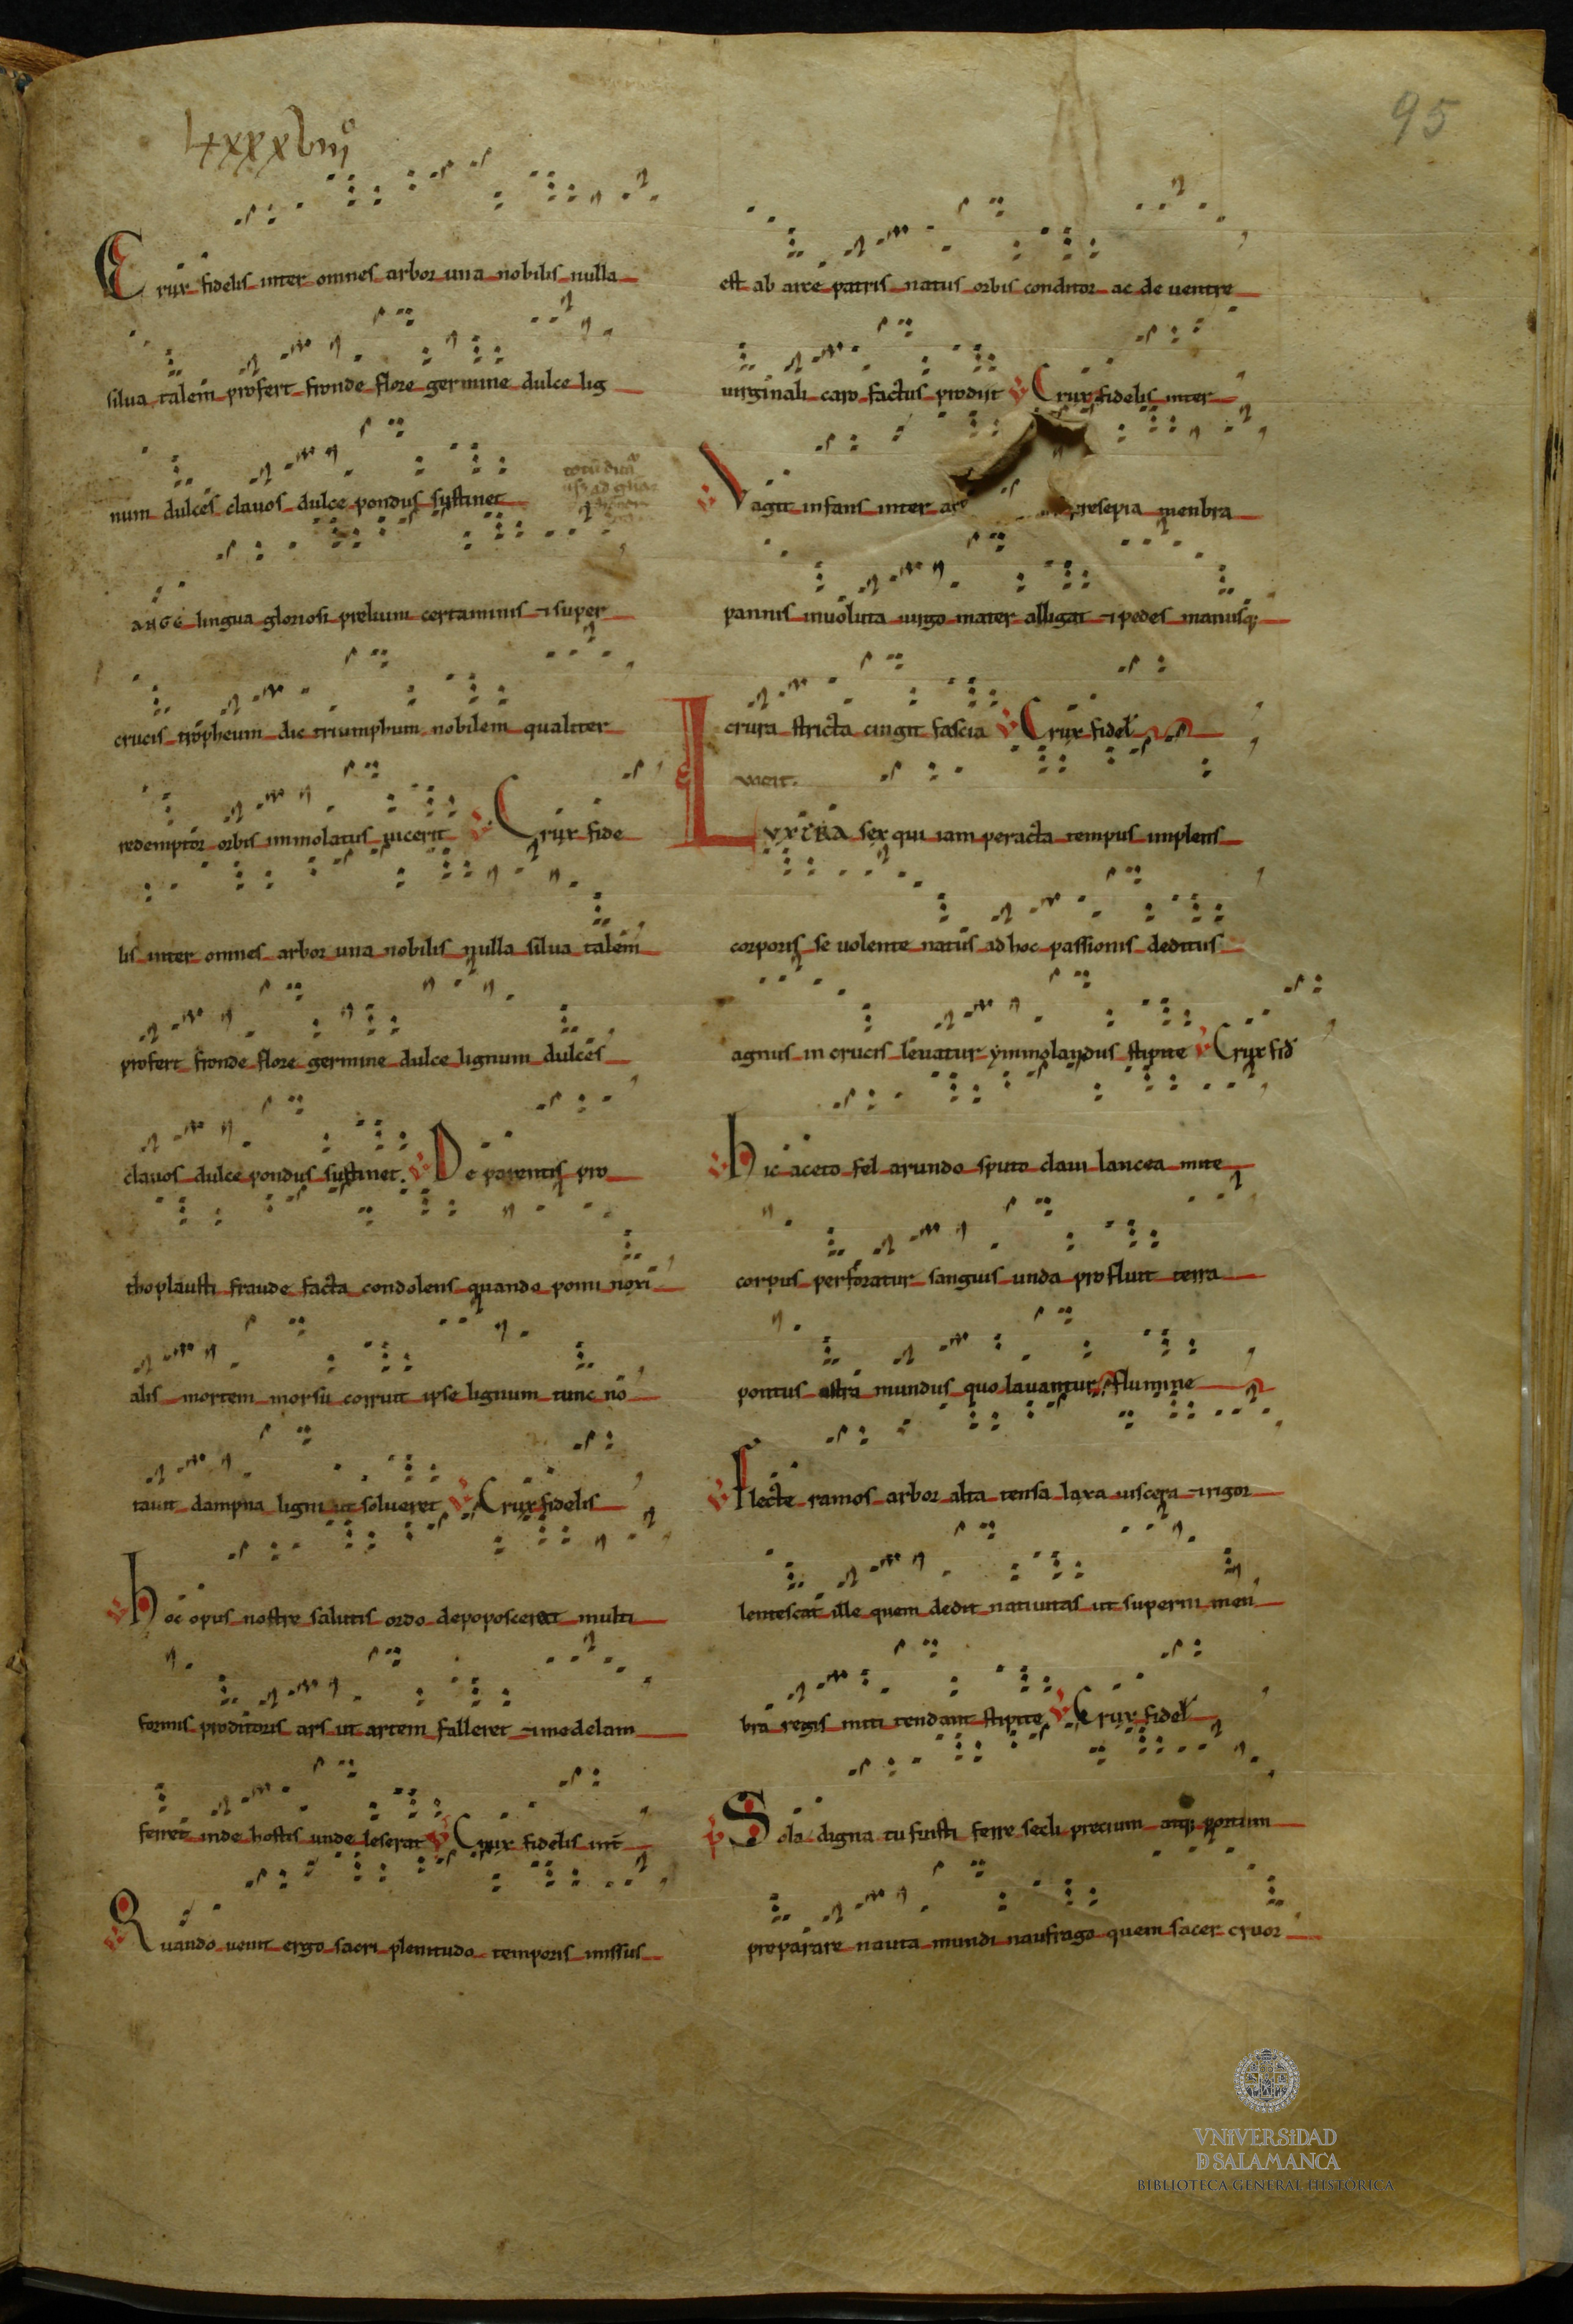 Lxxxviijº
95
Crux fidelis inter omnes arbor una nobilis nulla
silua talem profert fronde flore germine dulce lig
num dulces clauos dulce pondus sustinet
ANGE lingua gloriosi prelium certaminis ⁊ super
crucis tropheum dic triumphum nobilem qualiter
redemptor orbis immolatus uicerit V Crux fide
lis inter omnes arbor una nobilis nulla silua talem
profert fronde flore germine dulce lignum dulces
clauos dulce pondus sustinet. V De parentis pro
thoplausti fraude facta condolens quando pomi noxi
alis mortem morsu corruit ipse lignum tunc no
tauit dampna ligni ut solueret V Crux fidelis
V Hoc opus nostre salutis ordo depoposcerat multi
formis proditoris ars ut artem falleret ⁊ medelam
ferret inde hostis unde leserat V Crux fidelis int
V Quando uenit ergo sacri plenitudo temporis missus
est ab arce patris natus orbis conditor ac de uentre
uirginali caro factus prodiit V Crux fidelis inter
V Vagit infans inter presepia menbra
pannis inuoluta uirgo mater alligat ⁊ pedes manusq;
crura stricta cingit fascia V Crux fidel
LVXTRA sex qui iam peracta tempus implens
corporis se uolente natus ad hoc passionis deditus
agnus in crucis leuatur ymmolandus stipite V Crux fid
V Hic aceto fel arundo sputo claui lancea mite
corpus perforatur sanguis unda profluit terra
pontus astra mundus quo lauantur flumine
V Flecte ramos arbor alta tensa laxa uiscera ⁊ rigor
lentescat ille quem dedit natiuitas ut superni men
bra regis miti tendant stipite V Crux fidel
V Sola digna tu fuisti ferre secli precium atq; portum
preparare nauta mundi naufrago quem sacer cruor
VNIVERSIDAD
D SALAMANCA
BIBLIOTECA GENERAL HISTÓRICA